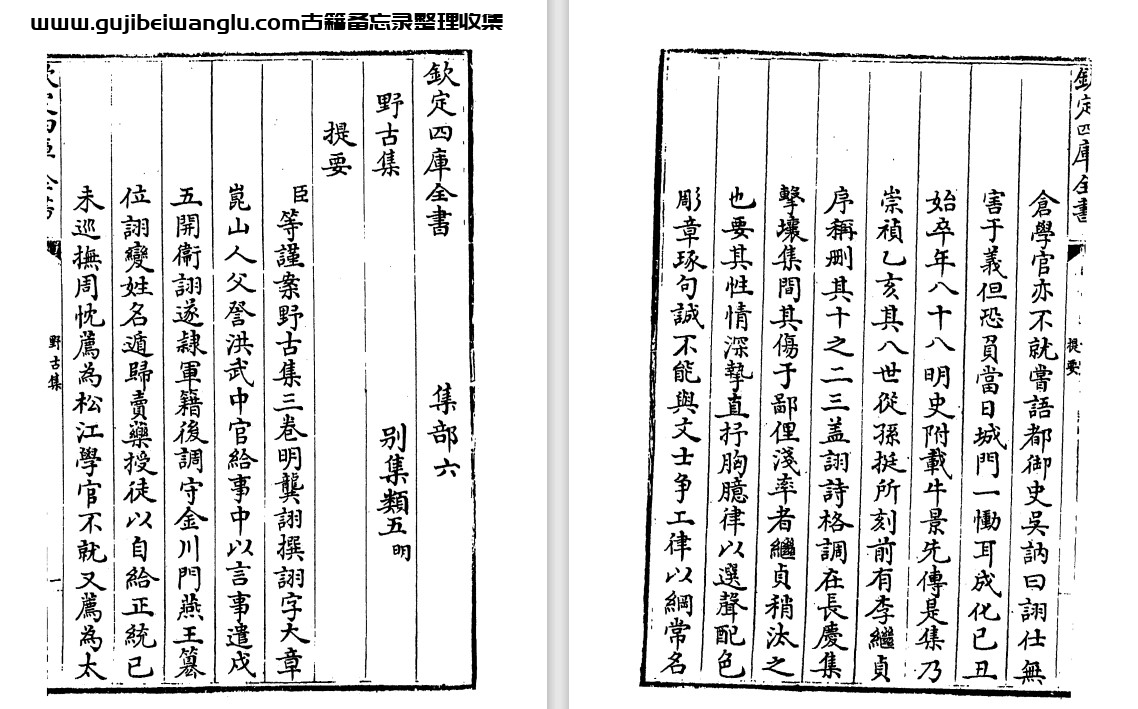 www.gujibeiwanglu.com古籍备忘录整理收集
欽定四庫全書 集部六
野古集 别集類五明
提要
臣等謹案野古集三卷明龔詡撰詡字大章
崑山人父詧洪武中官給事中以言事遣戍
五開衛詡遂隷軍籍後調守金川門燕王簒
位詡變姓名遁歸賣藥授徒以自給正統己
未巡撫周忱薦為松江學官不就又薦為太
欽定四庫全書
野古集
一
欽定四庫全書
提要
倉學官亦不就嘗語都御史吳訥曰詡仕無
害于義但恐負當日城門一慟耳成化己丑
始卒年八十八明史附載牛景先傳是集乃
崇禎乙亥其八世從孫挺所刻前有李繼貞
序稱刪其十之二三盖詡詩格調在長慶集
擊壤集間其傷于鄙俚淺率者繼貞稍汰之
也要其性情深摯直抒胸臆律以選聲配色
彫章琢句誠不能與文士争工律以綱常名